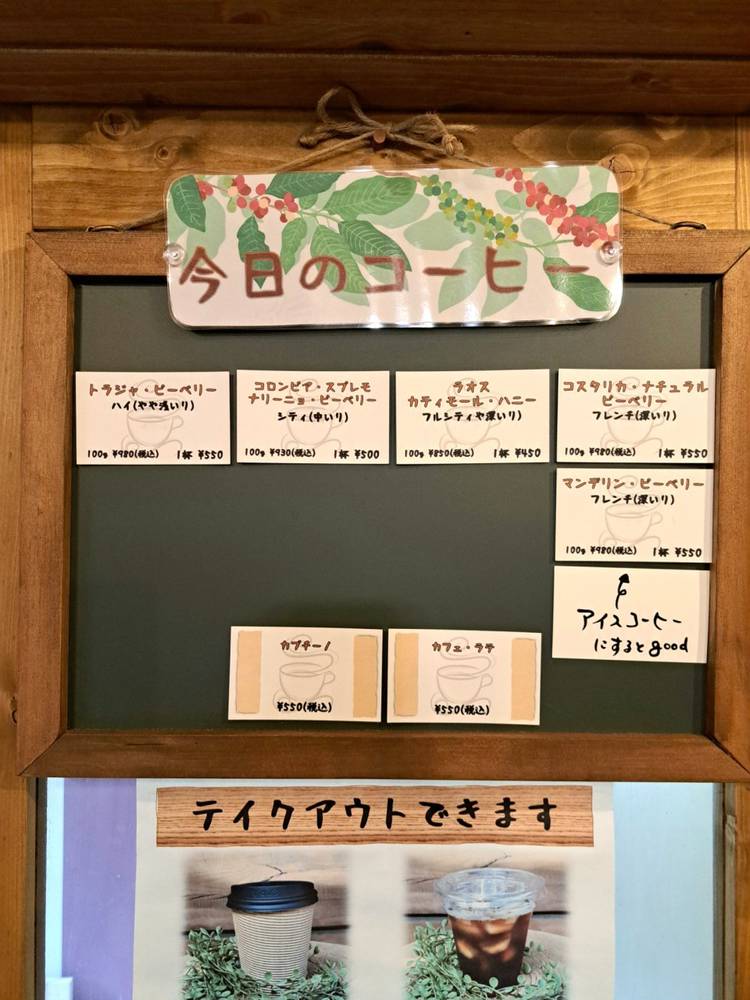 今日のコーヒー
トラジャ・ピーベリー
ハイ(やや浅いり)
100g ¥980(税込) 1杯 ¥550
コロンビア・スプレモ
ナリーニョ・ピーベリー
シティ(中いり)
100g ¥930(税込) 1杯 ¥500
ラオス
カティモール・ハニー
フルシティ(やや深いり)
100g ¥850(税込) 1杯 ¥450
コスタリカ・ナチュラル
ピーベリー
フレンチ(深いり)
100g ¥980(税込) 1杯 ¥550
マンデリン・ピーベリー
フレンチ(深いり)
100g ¥980(税込) 1杯 ¥550
アイスコーヒー
にするとgood
カプチーノ
¥550(税込)
カフェ・ラテ
¥550(税込)
テイクアウトできます